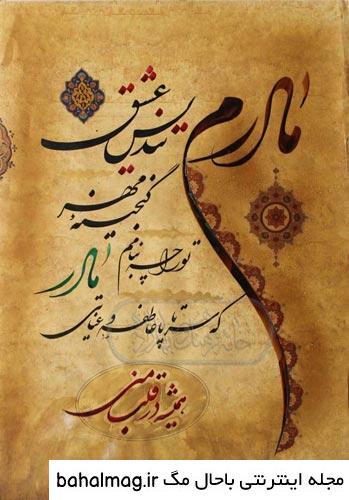 مادرم
تندیس عشق
گنجینه مهر
تو را چه بنامم
مادر
که سر تا پا عاطفه و عنایتی
همیشه در قلب منی
مجله اینترنتی باحال مگ bahalmag.ir